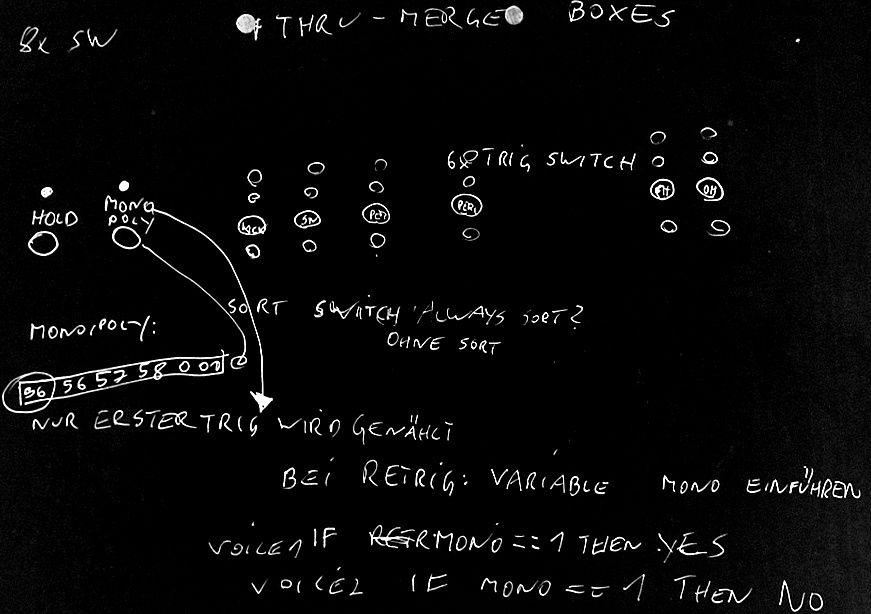 8x SW
THRU - MERGE BOXES
6x TRIG SWITCH
HOLD
MONO
POLY
KICK
SN
PER1
OH
SORT SWITCH ALWAYS SORT?
OHNE SORT
MONO/POLY:
36 56 57 58 0 0 0
NUR ERSTER TRIG WIRD GENÄHLT
BEI RETRIG: VARIABLE MONO EINFÜHREN
VOICE1 IF MONO == 1 THEN YES
VOICE2 IF MONO == 1 THEN NO